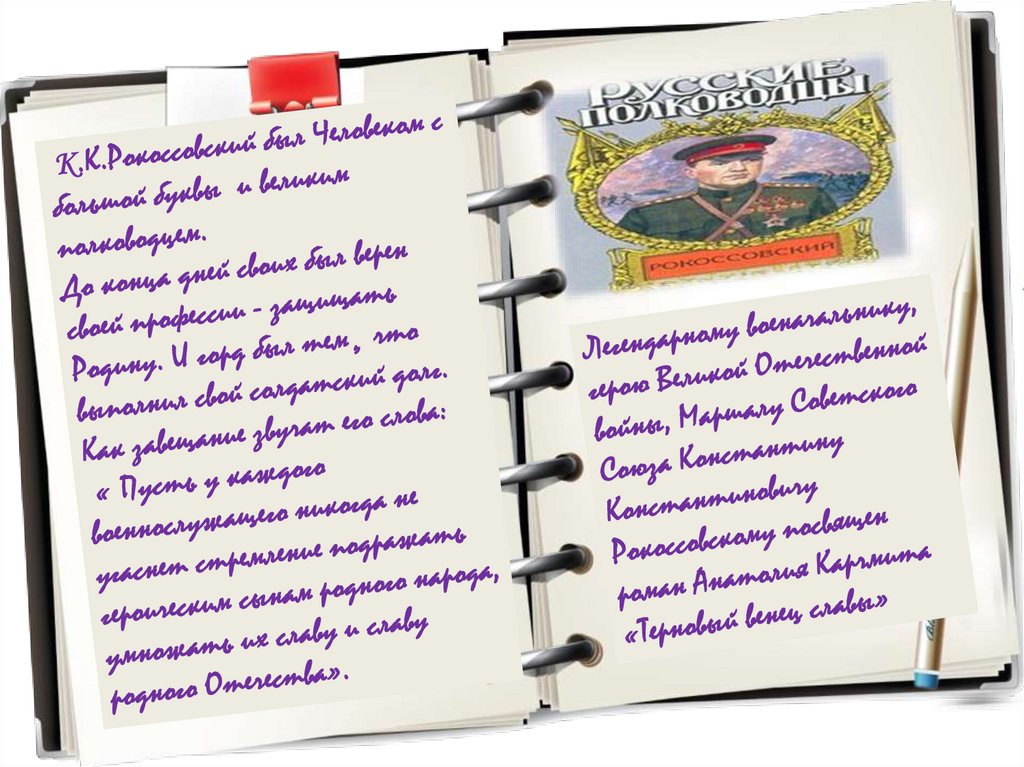 К.К.Рокоссовский был Человеком с
большой буквы и великим
полководцем.
До конца дней своих был верен
своей профессии - защищать
Родину. И горд был тем, что
выполнил свой солдатский долг.
Как завещание звучат его слова:
« Пусть у каждого
военнослужащего никогда не
угаснет стремление подражать
героическим сынам родного народа,
умножать их славу и славу
родного Отечества».
РУССКИЕ
ПОЛКОВОДЦЫ
РОКОССОВСКИЙ
Легендарному военачальнику,
герою Великой Отечественной
войны, Маршалу Советского
Союза Константину
Константиновичу
Рокоссовскому посвящен
роман Анатолия Карчмита
«Терновый венец славы»